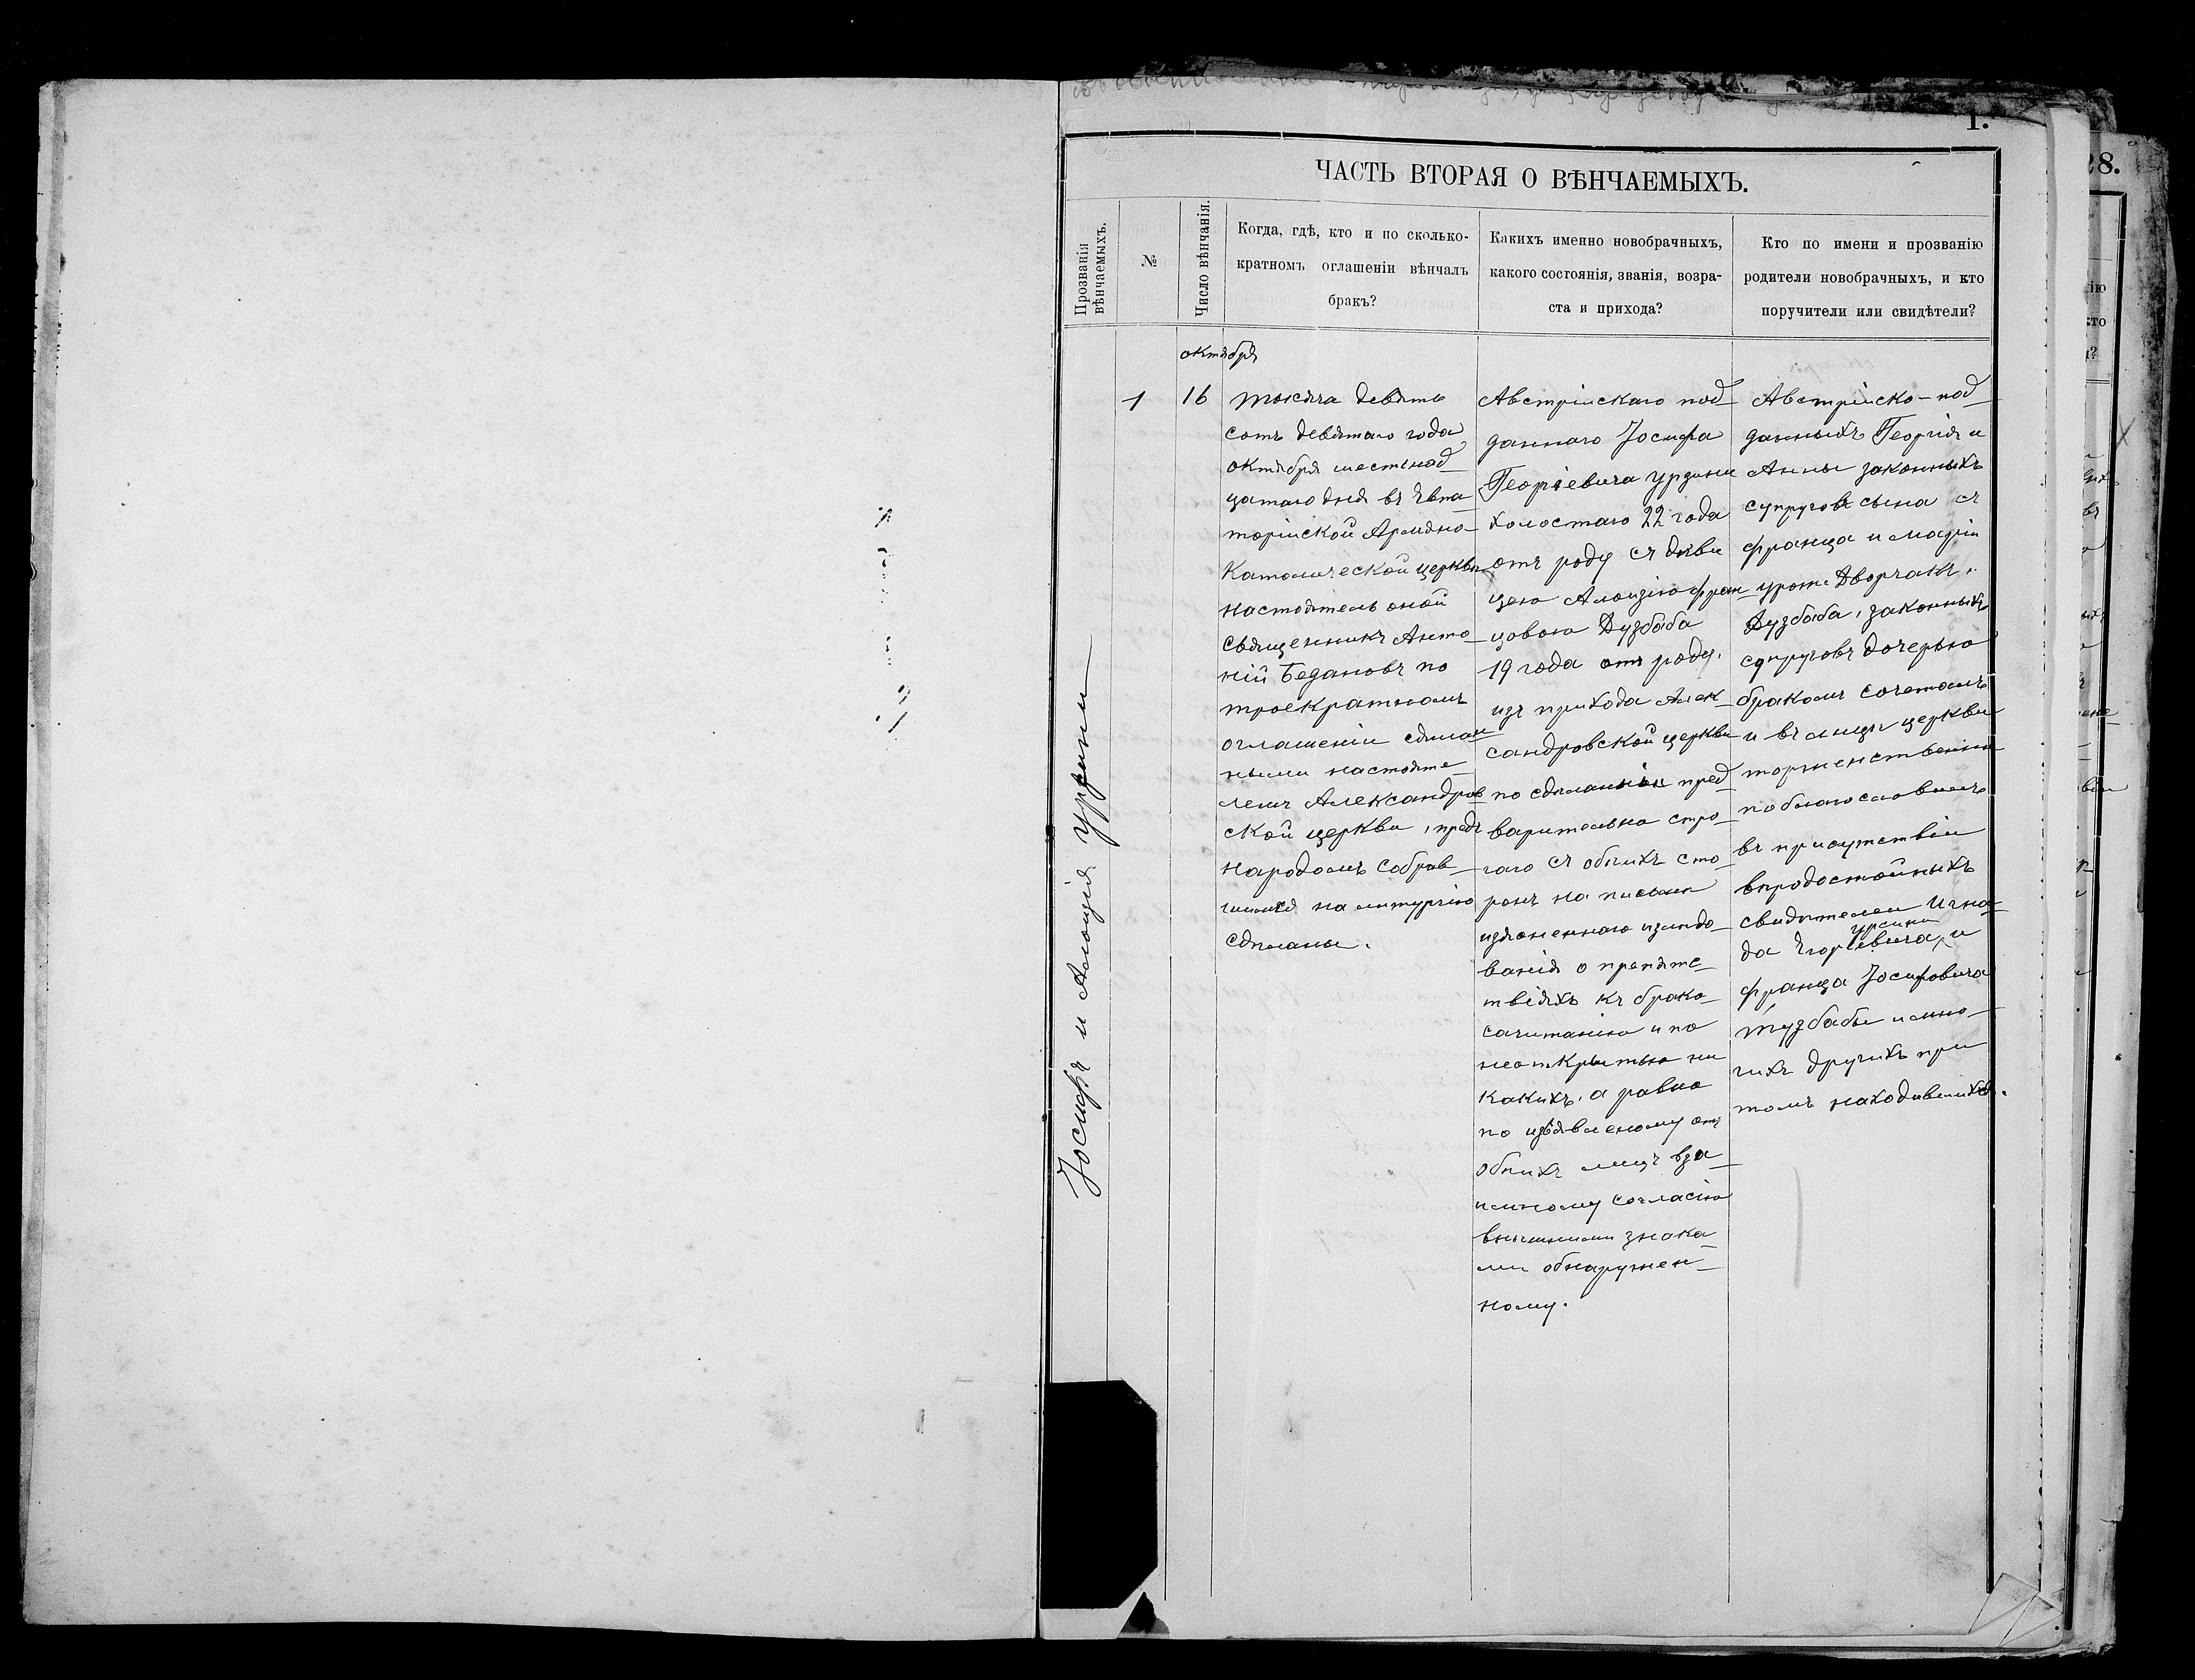 1.
28.
ЧАСТЬ ВТОРАЯ О ВѢНЧАЕМЫХЪ.
Прозванія вѣнчаемыхъ.
№
Число вѣнчанія.
Когда, гдѣ, кто и по сколько-
кратномъ оглашеніи вѣнчалъ
бракъ?
Какихъ именно новобрачныхъ,
какого состоянія, званія, возра-
ста и прихода?
Кто по имени и прозванію
родители новобрачныхъ, и кто
поручители или свидѣтели?
Іосифъ и Алоизія
октября
1
16
тысяча девять
сотъ девятаго года
октября шестьнад
цатаго дня въ Евпа
торійской Армяно-
Католической церкви
настоятель оной
священникъ Анто
ній Бедановъ по
троекратномъ
оглашеніи сдѣлан
ными настояте
лемъ Александров
ской церкви, предъ
народомъ собрав
шимся на литургію
сдѣланы.
Австрійскаго под
даннаго Іосифа
Георгіевича
холостаго 22 года
отъ роду съ дѣви
цею Алоизіею Фран
цовою Дузбаба
19 года отъ роду.
изъ прихода Алек
сандровской церкви
по сдѣланіи пред
варительно стро
гаго съ обѣихъ сто
ронъ на письмѣ
изъясненнаго изслѣдо
ванія о препятс
твіяхъ къ брако
сочитанію и по
неоткрытью ни
какихъ, а равно
по изъявленому отъ
обѣихъ лицъ вза
имному согласію
внѣшними знака
ми обнаружен
ному.
Австрійско-под
данныхъ Георгія и
Анны законныхъ
супруговъ сына съ
Франца и Маріи
урож. Дворчакъ,
Дузбаба, законныхъ
супруговъ дочерью
бракомъ сочеталъ
и въ лицѣ церкви
торжественно
поблагословилъ
въ присутствіи
вѣродостойныхъ
свидѣтелей Игна
да Егоріевича и
Франца Іосифовича
Тузбабы и мно
гихъ другихъ при
томъ находившихся.